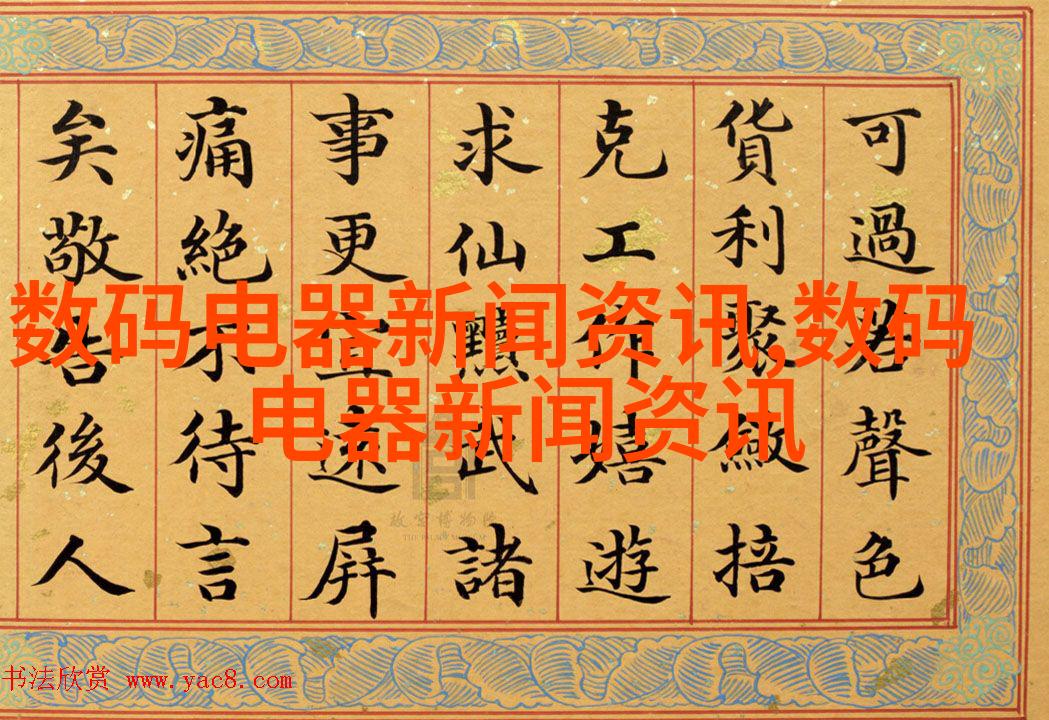 可過若聲色
貨利聚斂掊
克工作嬉遊
求仙黷武諸
事更宜遠屏
痛絕不待言
矣敬告後人
数码电器新闻资讯,数码
电器新闻资讯
故宫博物院
THE PALACE MUSEUM
书法欣赏 www.yac8.com